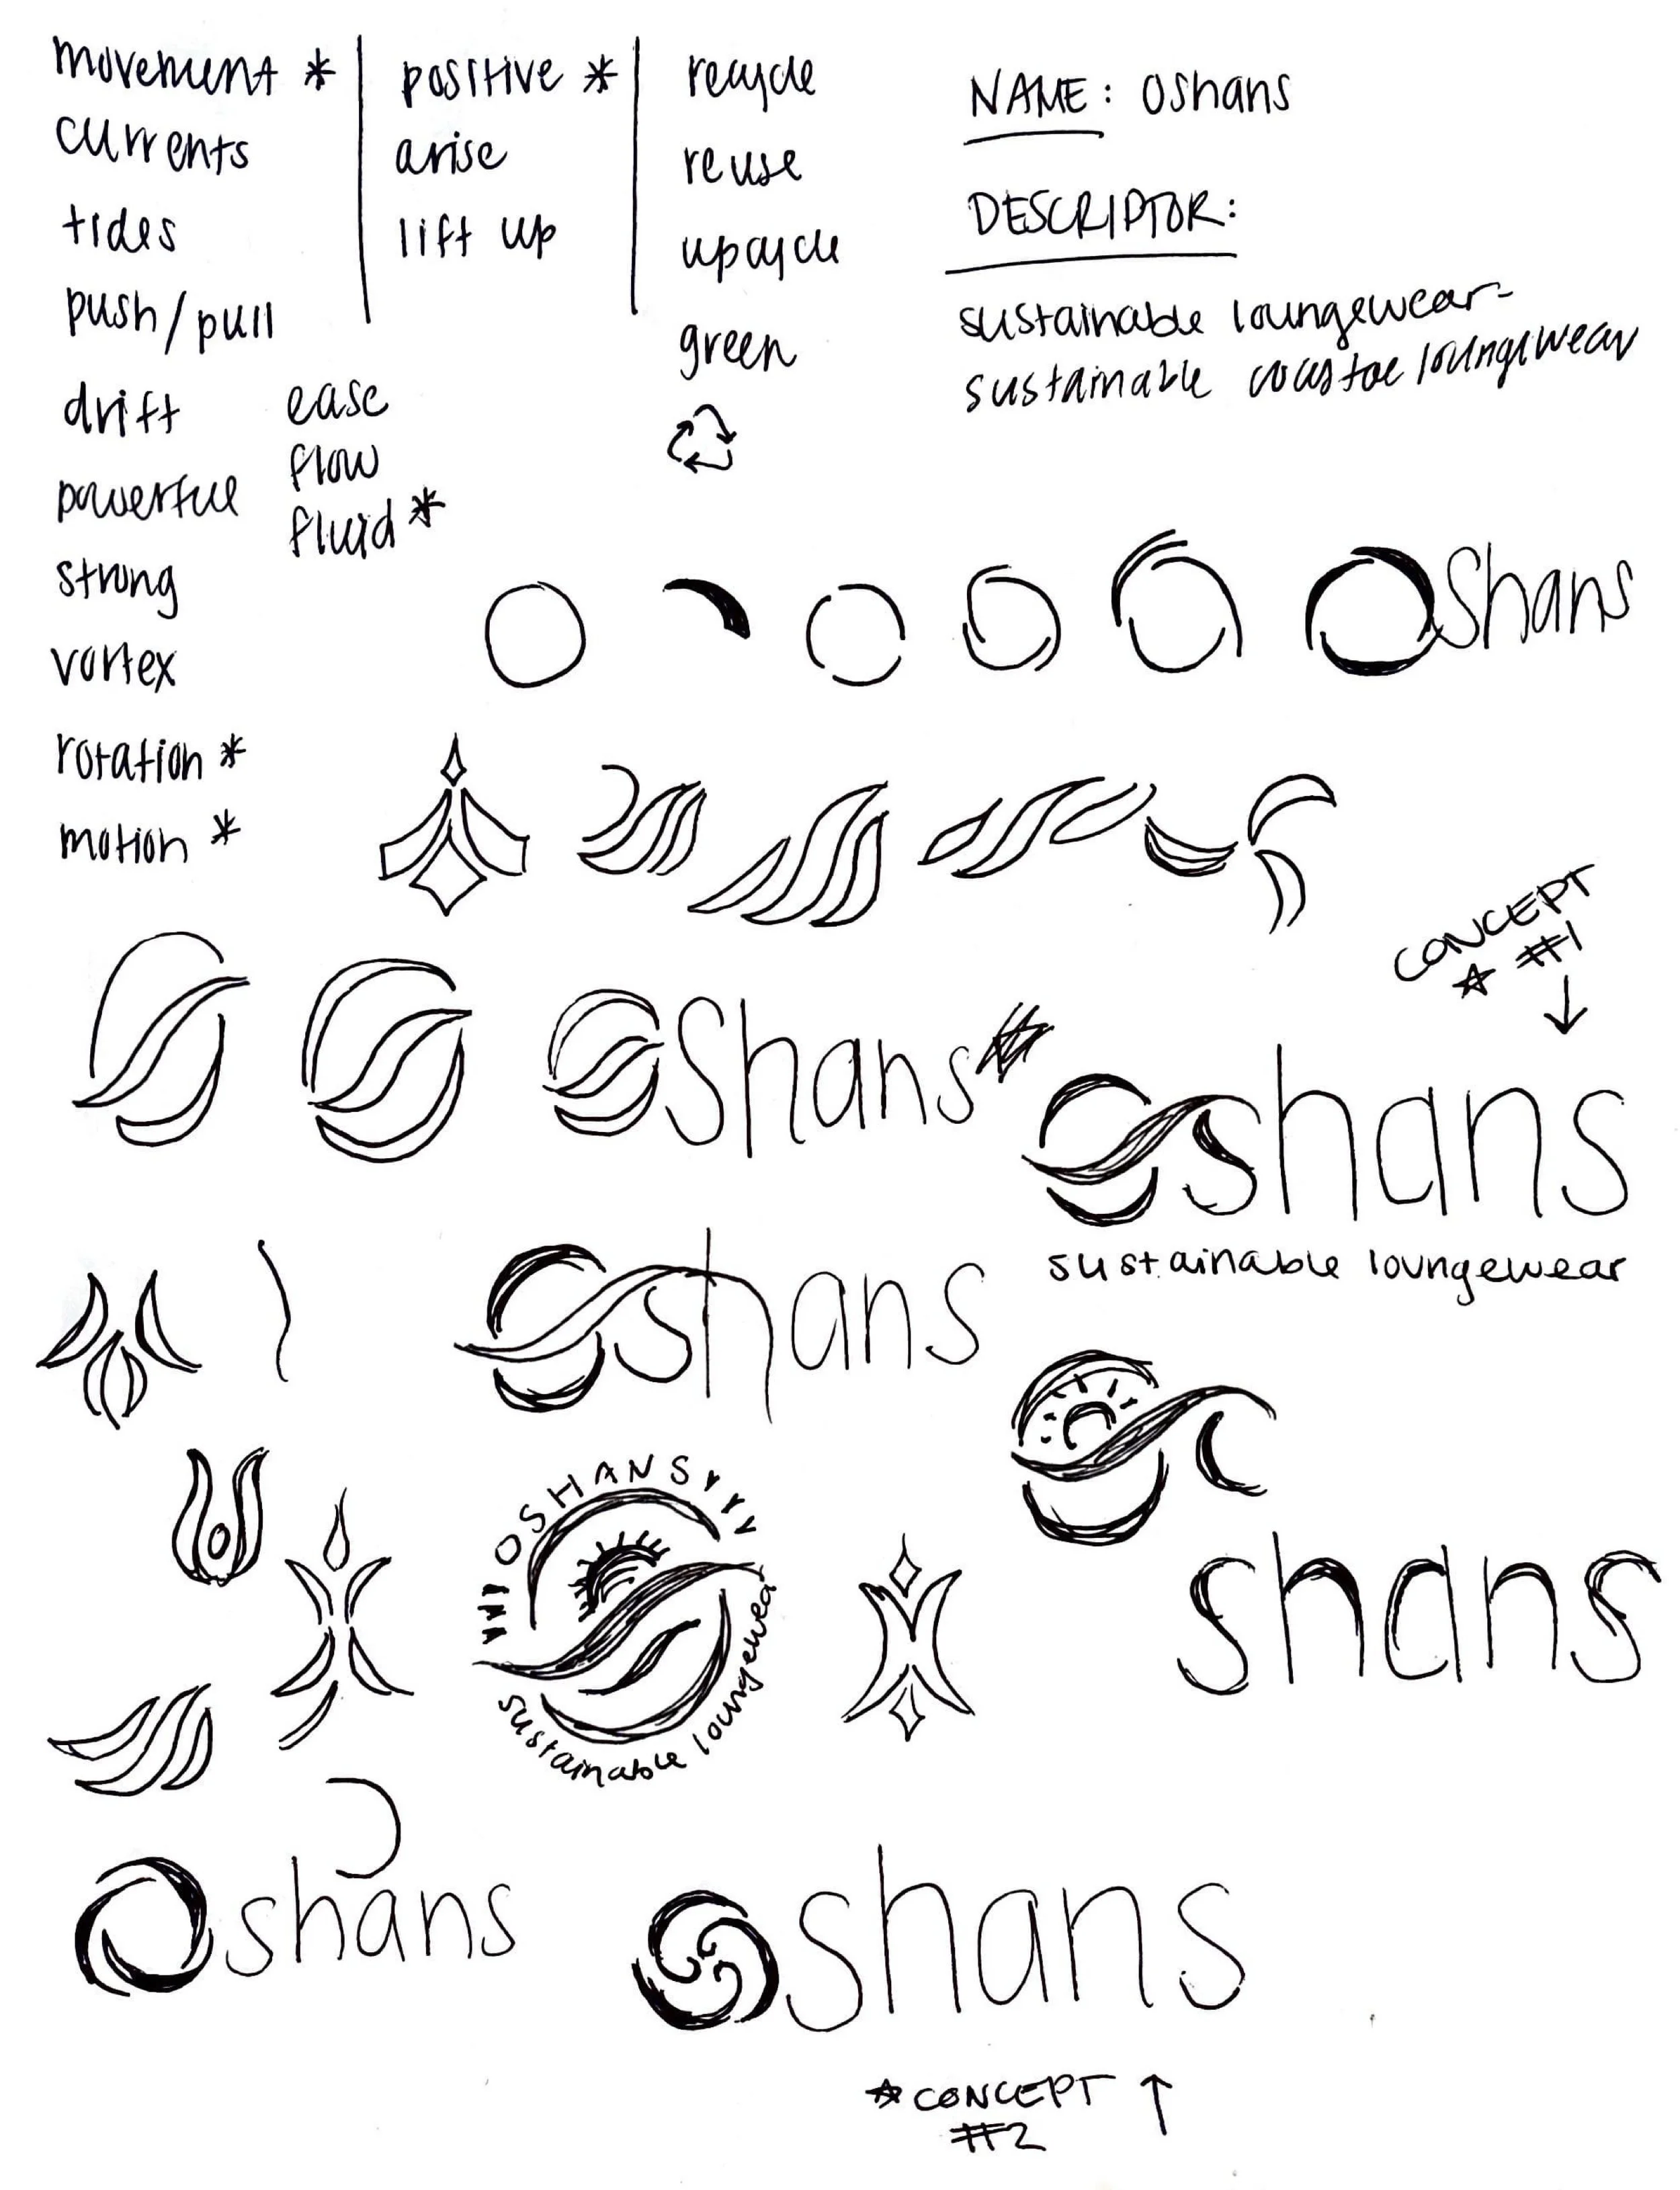 movement *
currents
tides
push/pull
drift
powerful
strong
vortex
rotation *
motion *
ease
flow
fluid *
positive *
arise
lift up
recycle
reuse
upcycle
green
NAME: Oshans
DESCRIPTOR:
sustainable loungewear-
sustainable coastal loungewear
OShans
CONCEPT
☆ #1
↓
OShans
Oshans
sustainable loungewear
Oshans
OSHANS
sustainable loungewear
Oshans
Oshans
Oshans
☆ CONCEPT ↑
#2